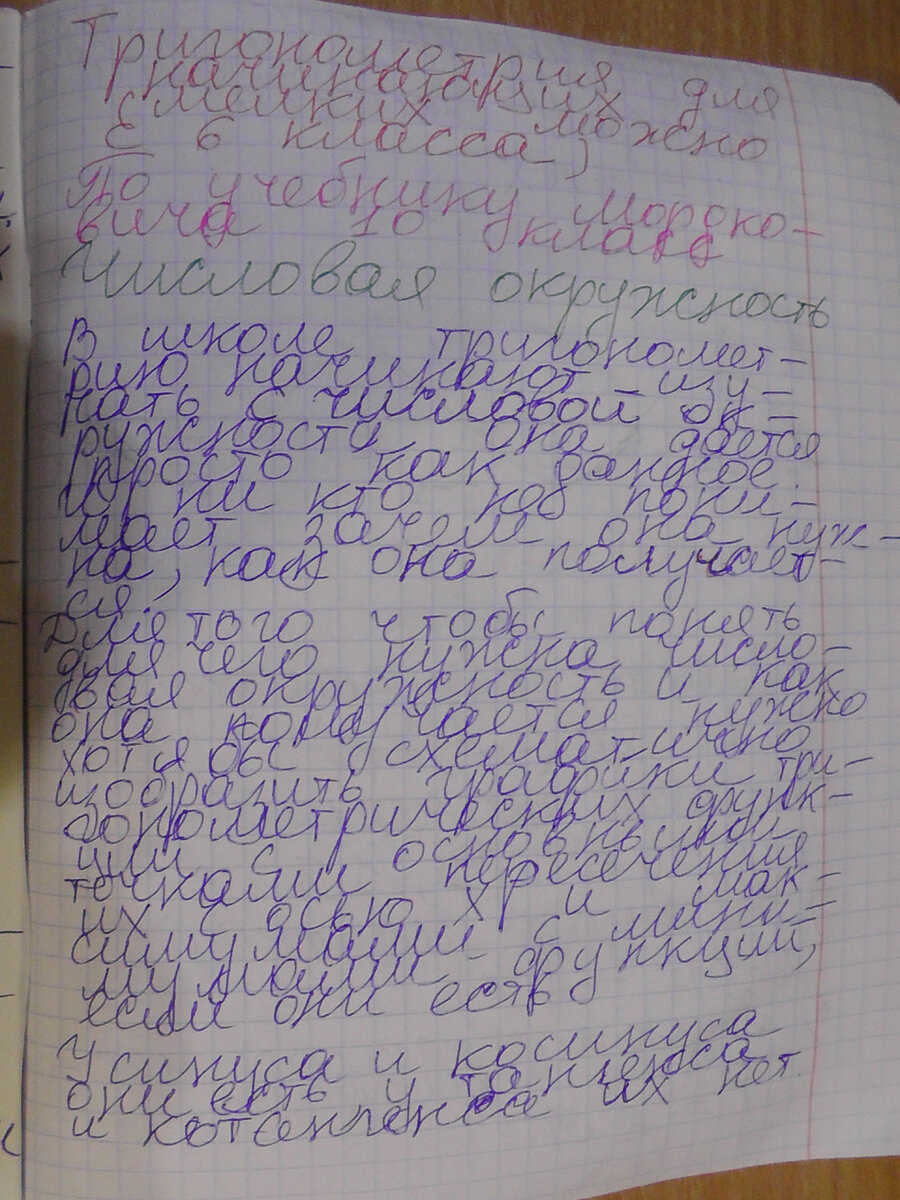 Тригонометрия для
начинающих
мелких можно
с 6 класса,
По учебнику Мордко-
вича 10 класс
Числовая окружность
В школе тригономет-
рию начинают изу-
чать с числовой ок-
ружности она дается
просто как данное.
И ни кто не пони-
мает зачем она нуж-
на, как она получает-
ся.
Для того чтобы понять
для чего нужна число-
вая окружность и как
она получается нужно
хотя бы схематично
изобразить графики три-
гонометрических функ-
ций с основными
точками пересечения
их с осью х и мак-
симумами с мини-
мумами функций,
если они есть
У синуса и косинуса
они есть у тангенса
и котангенса их нет.